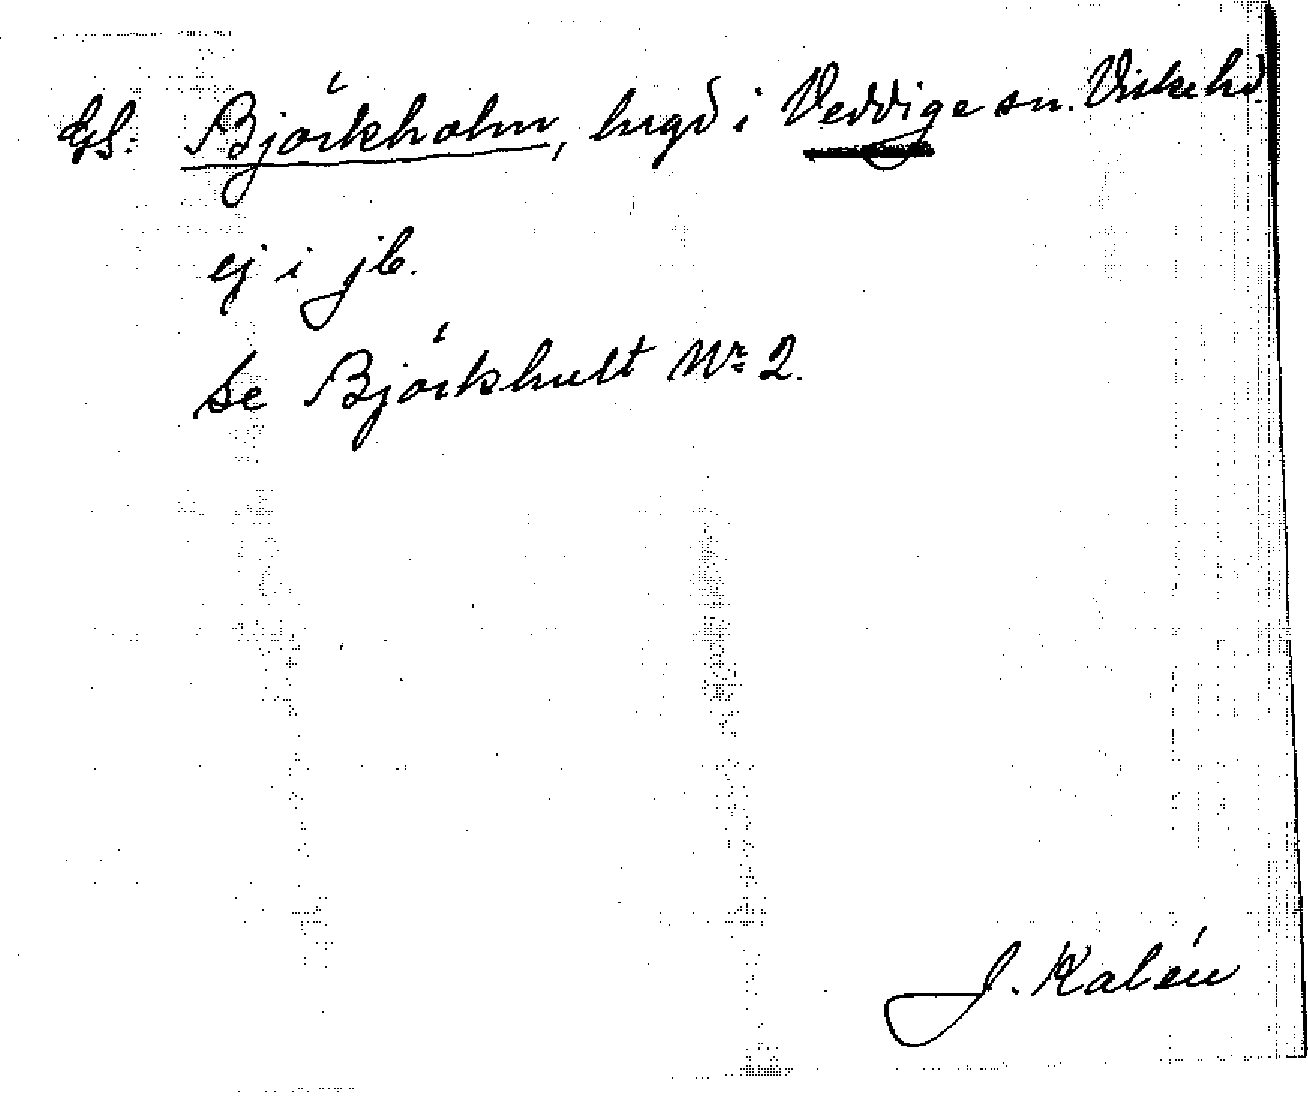 Gs: Björkholm, hrgd i Veddige sn. Viske hd
ej i jb.
Se Björkhult Nr 2.
J. Kalén